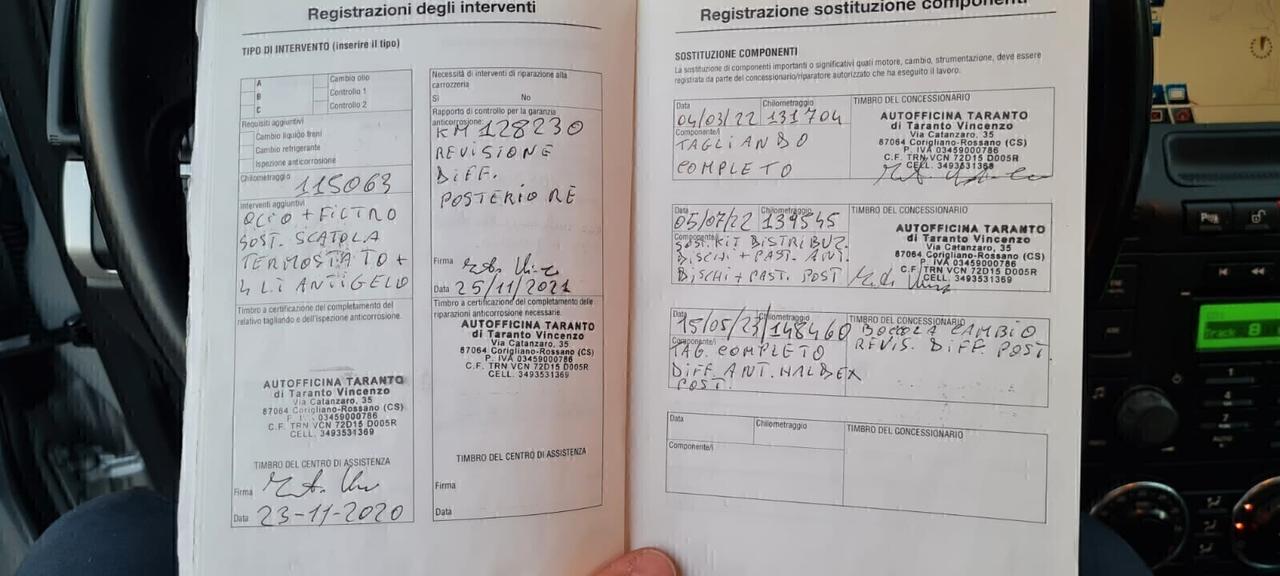 Registrazioni degli interventi
TIPO DI INTERVENTO (inserire il tipo)
A
B
C
Cambio olio
Controllo 1
Controllo 2
Requisiti aggiuntivi
Cambio liquido freni
Cambio refrigerante
Ispezione anticorrosione
Chilometraggio
115063
Interventi aggiuntivi
OLIO + FILTRO
SOST. SCATOLA
TERMOSTATO +
4 LI ANTIGELO
Timbro a certificazione del completamento del
relativo tagliando e dell'ispezione anticorrosione.
AUTOFFICINA TARANTO
di Taranto Vincenzo
Via Catanzaro, 35
87064 Corigliano-Rossano (CS)
P. IVA 03459000786
C.F. TRN VCN 72D15 D005R
CELL. 3493531369
TIMBRO DEL CENTRO DI ASSISTENZA
Firma
Data 23-11-2020
Necessità di interventi di riparazione alla
carrozzeria
Sì No
Rapporto di controllo per la garanzia
anticorrosione:
KM 128230
REVISIONE
DIFF.
POSTERIORE
Firma
Data 25/11/2021
Timbro a certificazione del completamento delle
riparazioni anticorrosione necessarie.
AUTOFFICINA TARANTO
di Taranto Vincenzo
Via Catanzaro, 35
87064 Corigliano-Rossano (CS)
P. IVA 03459000786
C.F. TRN VCN 72D15 D005R
CELL. 3493531369
TIMBRO DEL CENTRO DI ASSISTENZA
Firma
Data
Registrazione sostituzione componenti
SOSTITUZIONE COMPONENTI
La sostituzione di componenti importanti o significativi quali motore, cambio, strumentazione, deve essere
registrata da parte del concessionario/riparatore autorizzato che ha eseguito il lavoro.
Data
04/03/22
Chilometraggio
131704
Componente/i
TAGLIANDO
COMPLETO
TIMBRO DEL CONCESSIONARIO
AUTOFFICINA TARANTO
di Taranto Vincenzo
Via Catanzaro, 35
87064 Corigliano-Rossano (CS)
P. IVA 03459000786
C.F. TRN VCN 72D15 D005R
CELL. 3493531369
Data
05/07/22
Chilometraggio
139545
Componente/i
SOST. KIT DISTRIBUZ.
DISCHI + PAST. ANT.
DISCHI + PAST. POST
TIMBRO DEL CONCESSIONARIO
AUTOFFICINA TARANTO
di Taranto Vincenzo
Via Catanzaro, 35
87064 Corigliano-Rossano (CS)
P. IVA 03459000786
C.F. TRN VCN 72D15 D005R
CELL. 3493531369
Data
15/05/23
Chilometraggio
148460
Componente/i
TAG. COMPLETO
DIFF. ANT. HALDEX
POST.
TIMBRO DEL CONCESSIONARIO
BOCCOLA CAMBIO
REVIS. DIFF. POST.
Data
Chilometraggio
TIMBRO DEL CONCESSIONARIO
Componente/i
Track 8
1
4
7